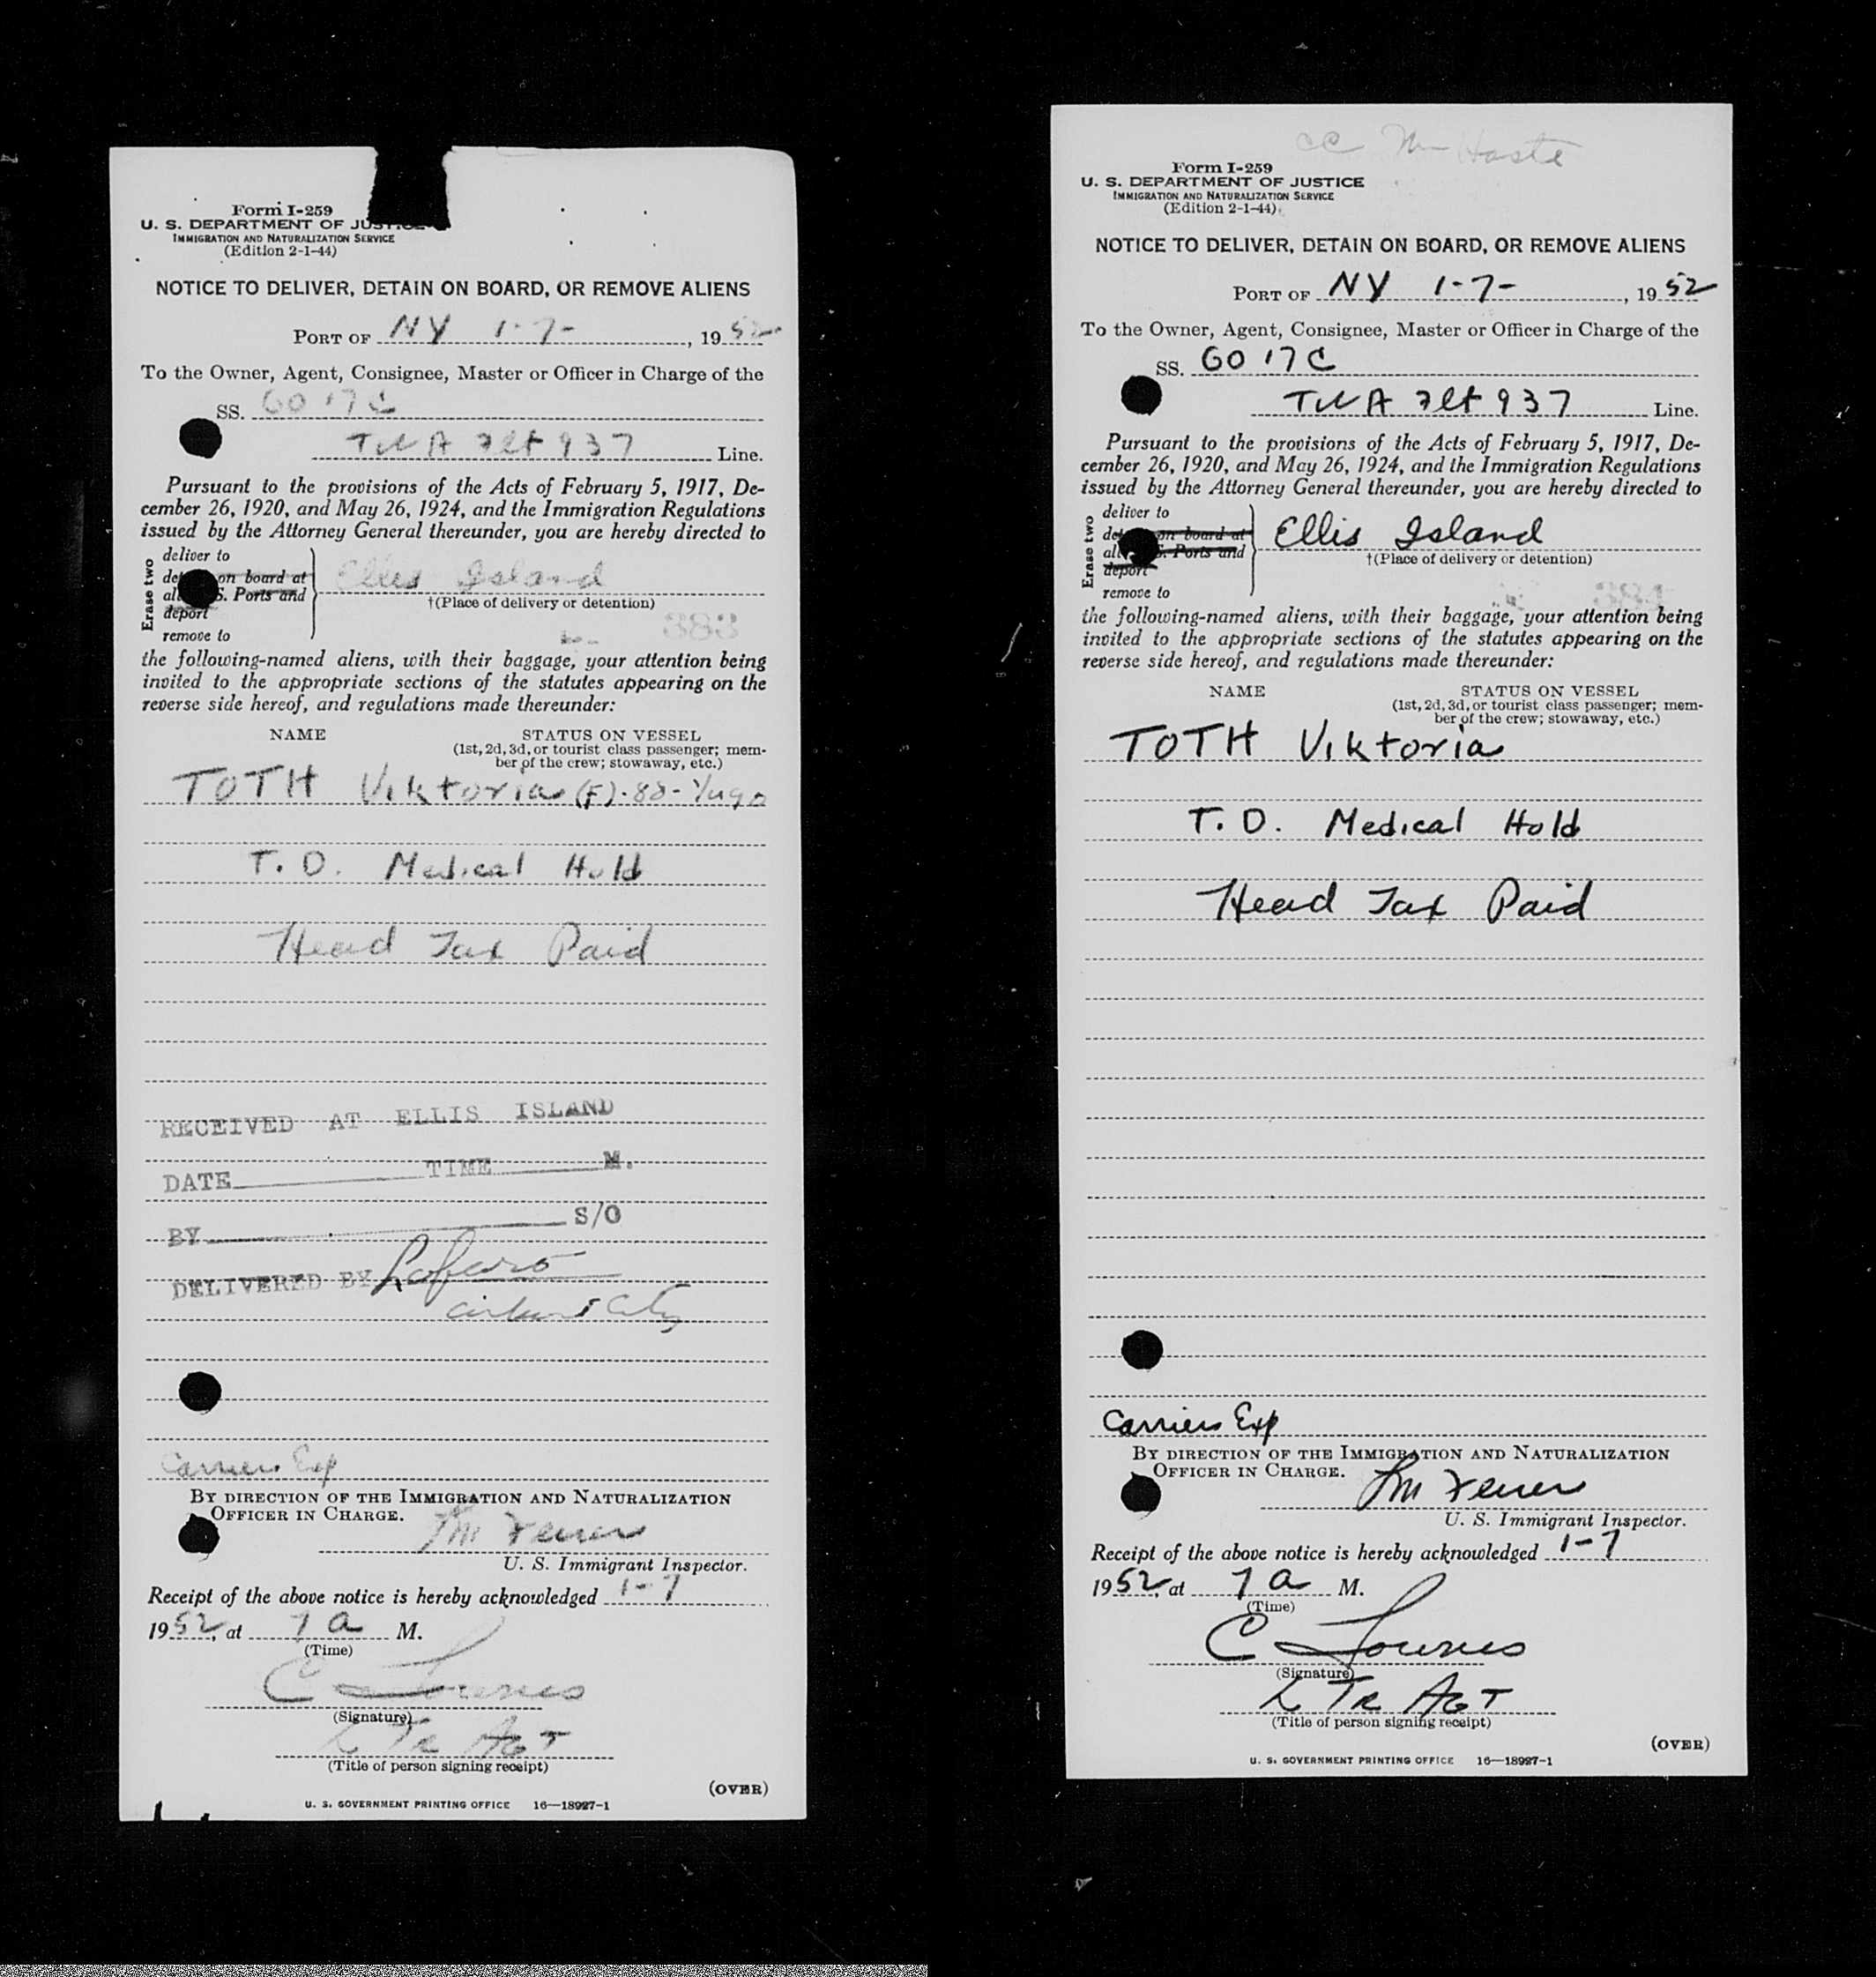 Form I-259
U. S. DEPARTMENT OF JUSTICE
IMMIGRATION AND NATURALIZATION SERVICE
(Edition 2-1-44)
NOTICE TO DELIVER, DETAIN ON BOARD, OR REMOVE ALIENS
PORT OF NY 1-7-, 1952
To the Owner, Agent, Consignee, Master or Officer in Charge of the
SS. GO 17C
TWA Flt 937 Line.
Pursuant to the provisions of the Acts of February 5, 1917, De-
cember 26, 1920, and May 26, 1924, and the Immigration Regulations
issued by the Attorney General thereunder, you are hereby directed to
Erase two
deliver to
on board at
S. Ports and
deport
remove to
Ellis Island
†(Place of delivery or detention)
383
the following-named aliens, with their baggage, your attention being
invited to the appropriate sections of the statutes appearing on the
reverse side hereof, and regulations made thereunder:
NAME STATUS ON VESSEL
(1st, 2d, 3d, or tourist class passenger; mem-
ber of the crew; stowaway, etc.)
TOTH Viktoria (F)-88-Yugo
T. D. Medical Hold
Head Tax Paid
RECEIVED AT ELLIS ISLAND
DATE TIME M.
BY S/O
DELIVERED BY
Carriers Exp
BY DIRECTION OF THE IMMIGRATION AND NATURALIZATION
OFFICER IN CHARGE.
U. S. Immigrant Inspector.
Receipt of the above notice is hereby acknowledged 1-7
1952, at 7 a M.
(Time)
C Townes
(Signature)
TR AGT
(Title of person signing receipt)
(OVER)
U. S. GOVERNMENT PRINTING OFFICE 16—18927-1
cc
Form I-259
U. S. DEPARTMENT OF JUSTICE
IMMIGRATION AND NATURALIZATION SERVICE
(Edition 2-1-44)
NOTICE TO DELIVER, DETAIN ON BOARD, OR REMOVE ALIENS
PORT OF NY 1-7-, 1952
To the Owner, Agent, Consignee, Master or Officer in Charge of the
SS. GO 17C
TWA Flt 937 Line.
Pursuant to the provisions of the Acts of February 5, 1917, De-
cember 26, 1920, and May 26, 1924, and the Immigration Regulations
issued by the Attorney General thereunder, you are hereby directed to
Erase two
deliver to
on board at
S. Ports and
deport
remove to
Ellis Island
†(Place of delivery or detention)
384
the following-named aliens, with their baggage, your attention being
invited to the appropriate sections of the statutes appearing on the
reverse side hereof, and regulations made thereunder:
NAME STATUS ON VESSEL
(1st, 2d, 3d, or tourist class passenger; mem-
ber of the crew; stowaway, etc.)
TOTH Viktoria
T. D. Medical Hold
Head Tax Paid
Carriers Exp
BY DIRECTION OF THE IMMIGRATION AND NATURALIZATION
OFFICER IN CHARGE.
U. S. Immigrant Inspector.
Receipt of the above notice is hereby acknowledged 1-7
1952, at 7 a M.
(Time)
C Townes
(Signature)
TR AGT
(Title of person signing receipt)
(OVER)
U. S. GOVERNMENT PRINTING OFFICE 16—18927-1